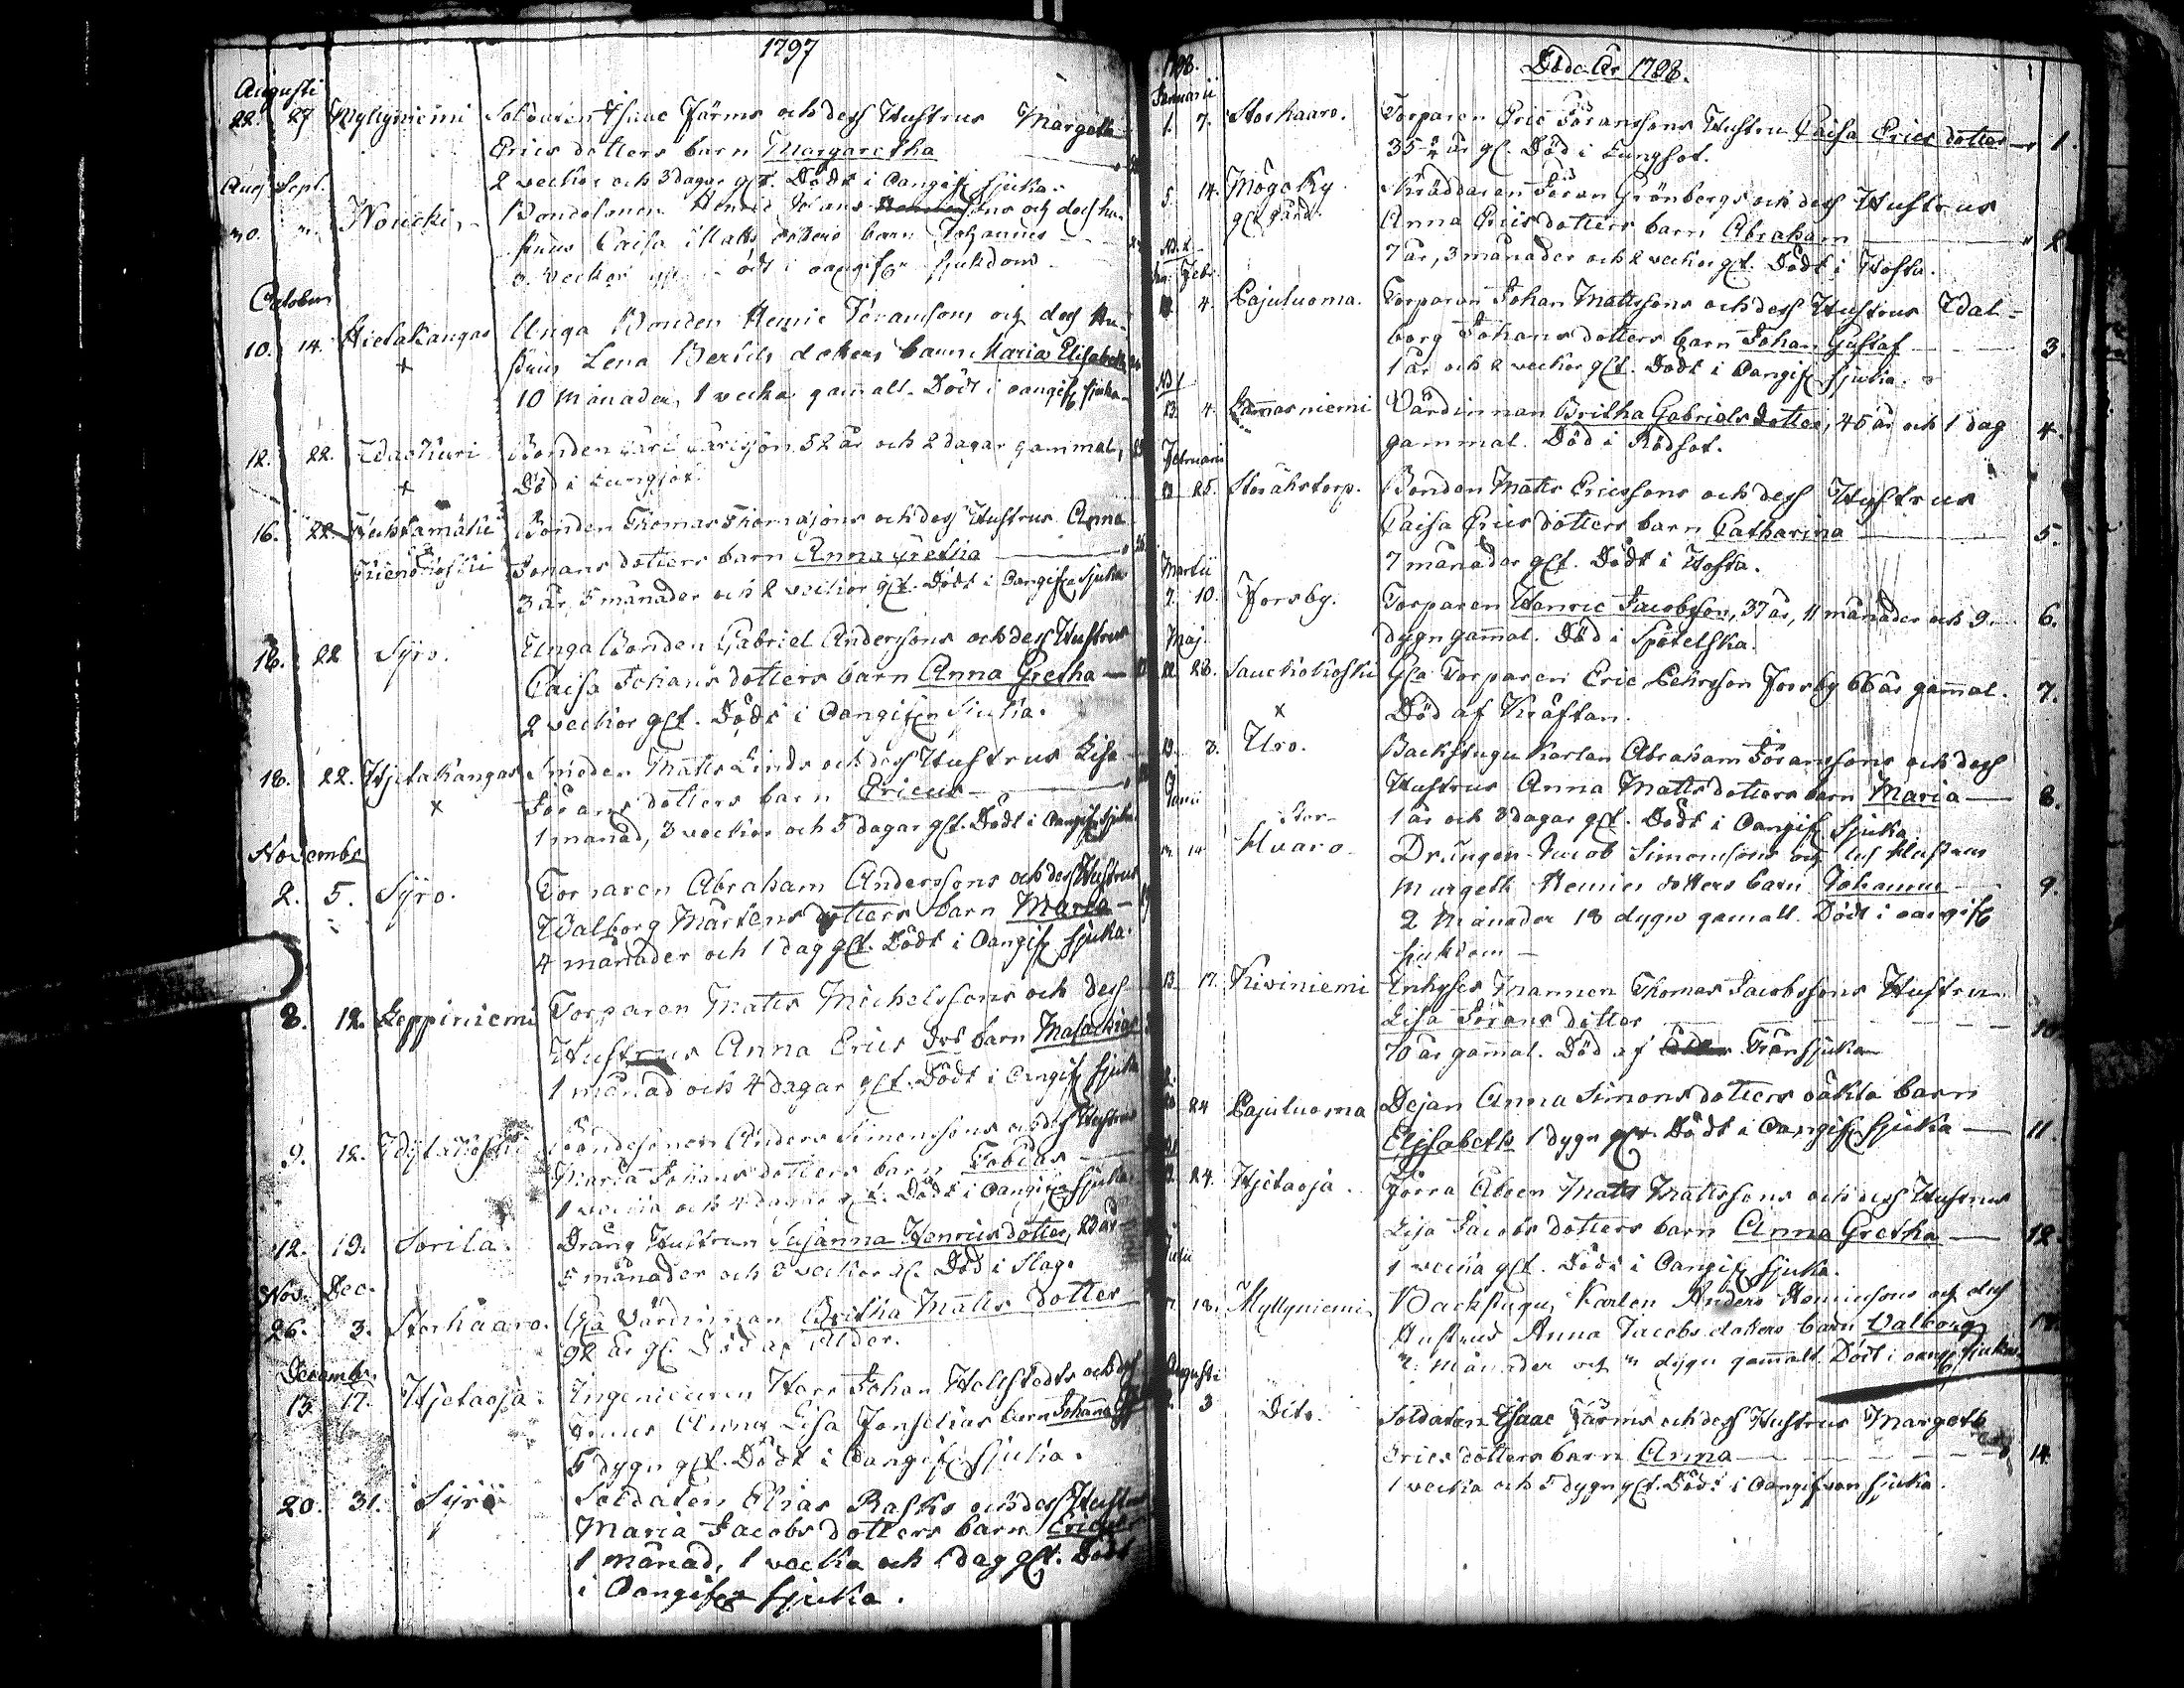 1797
Augusti
22. 27 Myllyniemi Soldaten Isaac Färms och dess Hustrus Margetha
Erics dotters barn Margaretha
2 veckor och 3 dagar glt. Dödt i Oangifn sjuka.
Aug Sept.
30. Noucki Bondesonen Henric Johans sons och dess hu-
strus Caisa Matts dotters barn Johannes
3 veckor dödt i oangifn sjukdom
October
10. 14. Hietakangas Unga Bonden Henric Göransons och dess Hu-
x strus Lena Bertils dotters barn Maria Elisabeth
10 månader, 1 vecka gamalt. Dödt i oangifn sjuka
12. 22. Bonden Carl Carlsson 52 år och 2 dagar gammal,
x Död i Lungsot.
16. 22. Bonden Thomas Thomassons och dess Hustrus Anna
Johans dotters barn Anna Gretha
3 år, 5 månader och 2 veckor glt. Dödt i Oangifn sjuka
16. 22 Syro. Unga Bonden Gabriel Anderssons och dess Hustrus
Caisa Johans dotters barn Anna Gretha
2 veckor glt. Dödt i Oangifn Sjuka.
18. 22. Hjetakangas Smeden Matts Linds och dess Hustrus Lisa
x Görans dotters barn Ericus
1 månad, 3 veckor och 5 dagar glt. Dödt i Oangifn sjuka
Novembr
2. 5. Syro. Torparen Abraham Anderssons och dess Hustrus
Walborg Mårtens dotters barn Maria
4 månader och 1 dag glt. Dödt i Oangifn sjuka.
8. 12. Leppiniemi Torparen Matts Michelssons och dess
Hustrus Anna Erics dotr barn Malachias
1 månad och 4 dagar glt. Dödt i Oangifn sjuka
9. 12. Bondesonen Anders Simonssons och dess Hustrus
Maria Johans dotters barn Tobias
1 vecka och 4 dagar glt. Dödt i Oangifn sjuka
12. 19. Sorila. Dräng Hustrun Susanna Henricsdotter, 23 år
5 månader och 3 veckor gl. Död i Slag.
Nov. Dec.
26. 3. Storhaaro. Gla Värdinnan Britha Matts dotter
92 år gl. Död af Ålder.
Decembr.
13. 17. Hjetaoja. Ingenieuren Herr Johan Hellstedts och dess
Frues Anna Lisa Forselias barn Johanna
5 dygn glt. Dödt i Oangifn sjuka.
20. 31. Syrö Soldaten Elias Rasks och dess Hustrus
Maria Jacobs dotters barn Ericus
1 månad, 1 vecka och 1 dag glt. Dödt
i Oangifn sjuka.
1798.
Döde År 1798.
Januarii
1. 7. Storhaaro. Torparen Eric Göranssons Hustru Caisa Ericsdotter 1.
35 år gl. Död i Lungsot.
5. 14. Mögeky Skräddaren Göran Grönbergs och dess Hustrus
glt gärd. Anna Erics dotters barn Abraham 2
7 år, 3 månader och 2 veckor glt. Dödt i Hosta.
Febr.
4. Pajuluoma. Torparen Johan Mattssons och dess Hustrus Wal-
borg Johans dotters barn Johan Gustaf 3.
1 år och 2 veckor glt. Dödt i Oangifn sjuka.
4. Lamasniemi Värdinnan Britha Gabriels dotter, 46 år och 1 dag 4.
gammal. Död i Rödsot.
Februarii
25. Storåhstorp. Bonden Matts Ericssons och dess Hustrus
Caisa Erics dotters barn Catharina 5.
7 månader glt. Dödt i Hosta.
Martii
7. 10. Forsby. Torparen Henric Jacobsson, 37 år, 11 månader och 9. 6.
dygn gamal. Död i Spetelska.
Maj.
22. 28. Sauckokoski Gla Torparen Eric Pehrsson Forsby 66 år gamal. 7.
x Död af Kräftan.
19. 3. Uro. Backstugu Karlen Abraham Göranssons och dess
Junii Hustrus Anna Matts dotters barn Maria 8.
1 år och 3 dagar glt. Dödt i Oangifn sjuka
Stor-
14 Hvaro Drängen Jacob Simonssons och des Hustrus
Margeth Henrics dotters barn Johannes 9.
2 Månader 18 dygn gamalt. Dödt i oangifn
sjukdom
13. 17. Kiviniemi Inhyses Mannen Thomas Jacobssons Hustru
Lisa Görans dotter 10
70 år gamal. Död af Trånsjukan
24 Pajuluoma Dejan Anna Simons dotters oäkta barn
Elisabeth 1 dygn glt. Dödt i Oangifn sjuka 11.
24. Hjetaoja. Matts Mattssons och dess Hustrus
Lisa Jacobs dotters barn Anna Gretha 12.
1 vecka glt. Dödt i Oangifn sjuka.
Julii
18. Myllyniemi Backstugu Karlen Anders Henricsons och dess
Hustrus Anna Jacobs dotters barn Valborg 13.
månader och dygn gamalt. Dödt i oangifn sjukan.
Augusti
2. 3 Dito. Soldaten Isaac Färms och dess Hustrus Margeth
Erics dotters barn Anna 14
1 vecka och 5 dygn glt. Dödt i Oangifven sjuka.